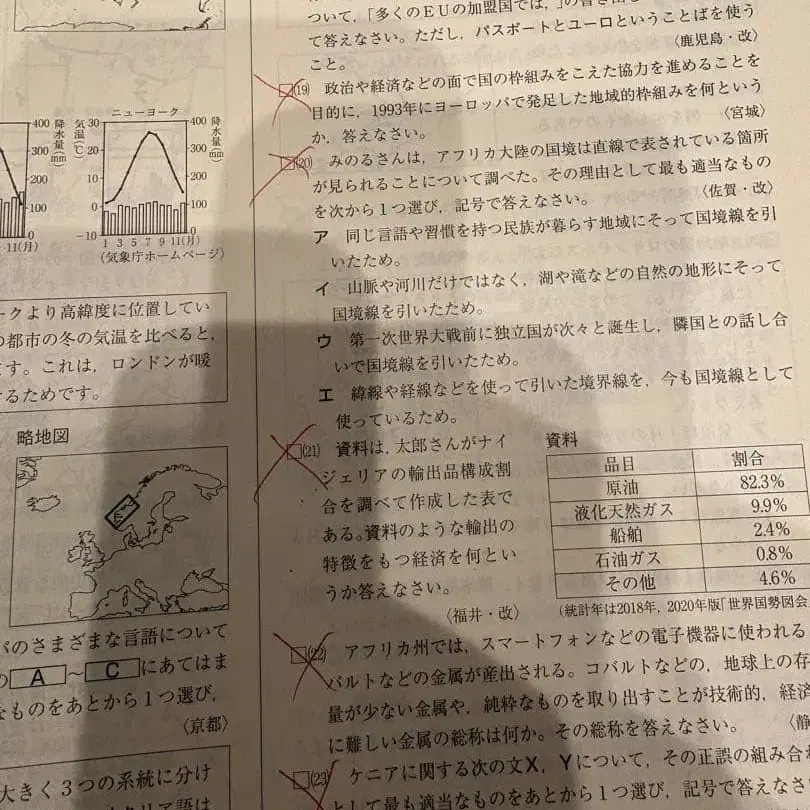 ニューヨーク
降水量(mm)
気温(℃)
降水量(mm)
400 30 400
300 20 300
200 10 200
100 0 100
0 -10 0
11(月) 1 3 5 7 9 11(月)
(気象庁ホームページ)
ークより高緯度に位置してい
の都市の冬の気温を比べると,
す。これは,ロンドンが暖
するためです。
略地図
パのさまざまな言語について
の A ~ C にあてはま
なものをあとから1つ選び,
〈京都〉
大きく3つの系統に分け
ついて,「多くのEUの加盟国では,」の書き出し
て答えなさい。ただし,パスポートとユーロということばを使う
こと。 〈鹿児島・改〉
□(19) 政治や経済などの面で国の枠組みをこえた協力を進めることを
目的に,1993年にヨーロッパで発足した地域的枠組みを何という
か,答えなさい。 〈宮城〉
□(20) みのるさんは,アフリカ大陸の国境は直線で表されている箇所
が見られることについて調べた。その理由として最も適当なもの
を次から1つ選び,記号で答えなさい。 〈佐賀・改〉
ア 同じ言語や習慣を持つ民族が暮らす地域にそって国境線を引
いたため。
イ 山脈や河川だけではなく,湖や滝などの自然の地形にそって
国境線を引いたため。
ウ 第一次世界大戦前に独立国が次々と誕生し,隣国との話し合
いで国境線を引いたため。
エ 緯線や経線などを使って引いた境界線を,今も国境線として
使っているため。
□(21) 資料は,太郎さんがナイ
ジェリアの輸出品構成割
合を調べて作成した表で
ある。資料のような輸出の
特徴をもつ経済を何とい
うか答えなさい。
〈福井・改〉
資料
品目 割合
原油 82.3%
液化天然ガス 9.9%
船舶 2.4%
石油ガス 0.8%
その他 4.6%
(統計年は2018年, 2020年版「世界国勢図会
□(22) アフリカ州では,スマートフォンなどの電子機器に使われる
バルトなどの金属が産出される。コバルトなどの,地球上の存
量が少ない金属や,純粋なものを取り出すことが技術的,経済
に難しい金属の総称は何か。その総称を答えなさい。 〈静
□(23) ケニアに関する次の文X,Yについて,その正誤の組み合わ
として最も適当なものをあとから1つ選び,記号で答えなさ